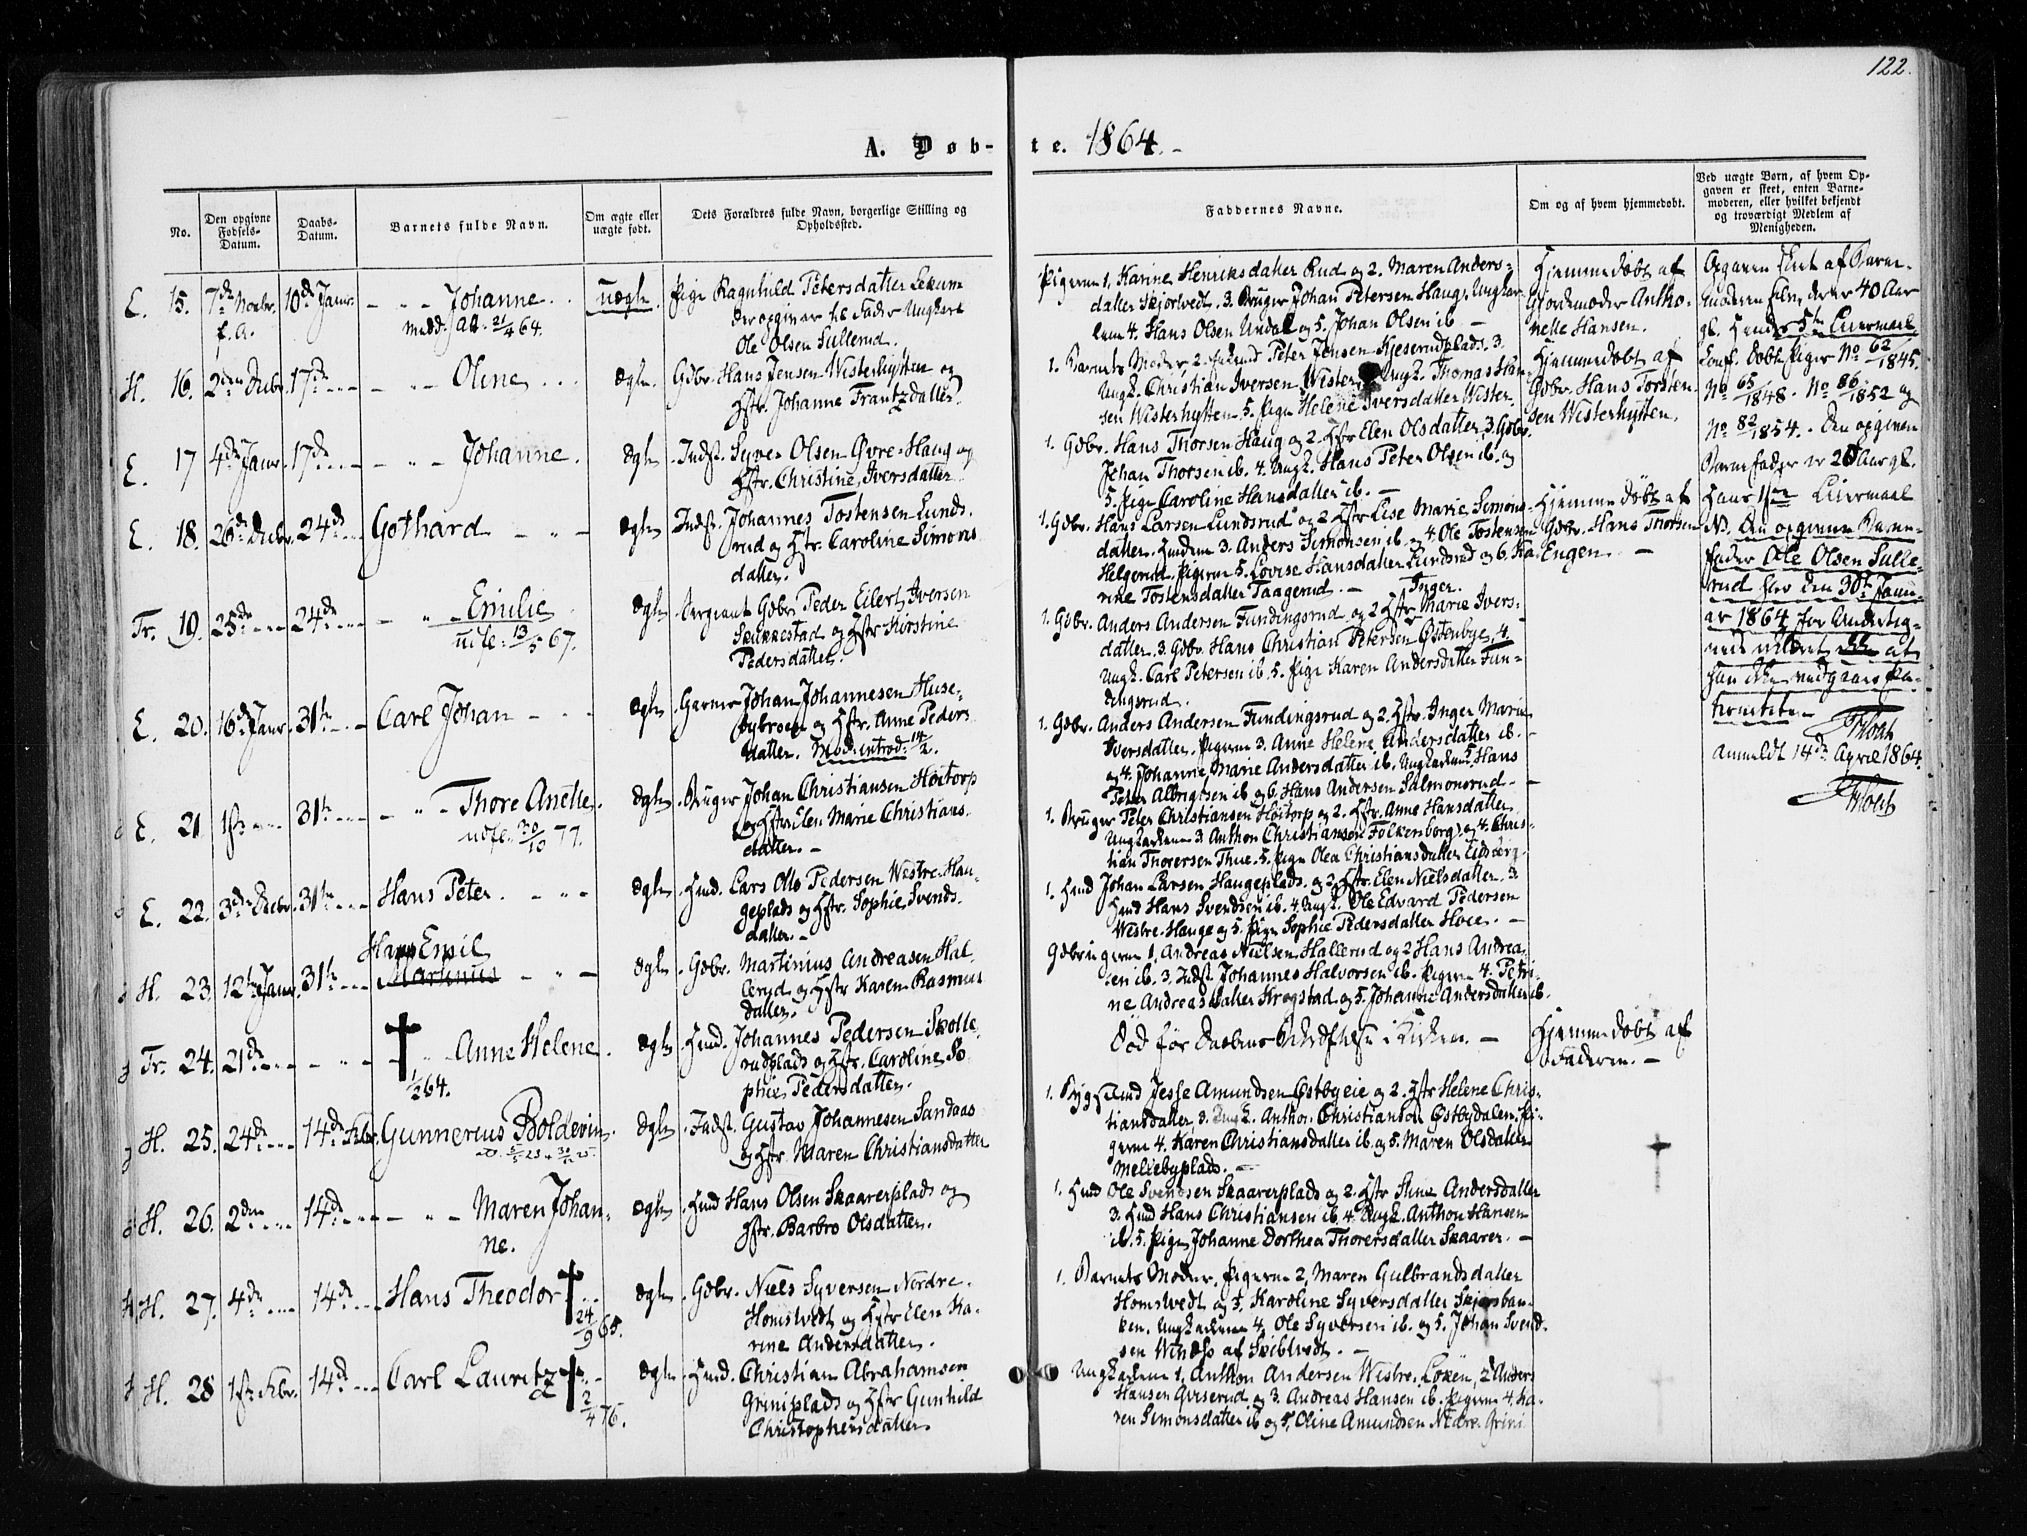 122.
A. Døb-te. 1864.-
No.
Den opgivne Fødsels-Datum.
Daabs-Datum.
Barnets fulde Navn.
Om ægte eller uægte født.
Dets Forældres fulde Navn, borgerlige Stilling og Opholdssted.
Faddernes Navne.
Om og af hvem hjemmedøbt.
Ved uægte Børn, af hvem Opgaven er skeet, enten Barnemoderen, eller hvilket bekjendt og troværdigt Medlem af Menigheden.
E. 15. 7de Novbr. f. A. 10de Janr. Johanne. uægte.
Pige Ragnhild Petersdatter
der opgiver til Fader Ungkarl
Ole Olsen Sullerud.
Pigerne 1, Karine Henriksdatter Rud og 2. Maren Anders-
datter Skjorvedt. 3. Bruger Johan Petersen Haug. Ungkar-
lene 4. Hans Olsen Undal og 5. Johan Olsen ib. -
Hjemmedøbt af
Gjordemoder Antho-
nette Hansen.
H. 16. 2den Decbr. 17de Oline ægte.
Gdbr. Hans Jensen Westerhytten og
Hstr. Johanne Frantzdatter.
1. Barnets Moder, 2. Peter Jensen Kjeserudplads. 3.
Ungk. Christian Iversen Wester Ungk. Thomas Han-
sen Westerhytten. 5. Pige Helene Iversdatter Wester.
Hjemmedøbt af
Gdbr. Hans Torsten-
sen Westerhytten.
E. 17 4de Janr. 17de Johanne. ægte
Indst. Syver Olsen Øvre-Haug og
Hstr. Christine Iversdatter
1. Gdbr. Hans Thorsen Haug og 2. Hstr. Elen Olsdatter. 3. Gdbr.
Johan Thorsen ib. 4. Ungk. Hans Peter Olsen ib. og
5. Pige Caroline Hansdatter ib. -
E. 18. 26de Decbr. 24de Gothard ægte
Indst. Johannes Tostensen Lunds-
rud og Hstr. Caroline Simons
datter.
1. Gdbr. Hans Larsen Lundsrud og 2. Hstr. Lise Marie Simons-
datter. 3. Anders Simonsen ib. og 4. Ole Tostensen
Helgerud. Pigerne 5. Lovise Hansdatter Lundsrud og 6. Ka-
rine Tostensdatter Taagerud. -
Hjemmedøbt af
Gdbr. Hans Thorsen
Engen. -
Tr. 19. 25de 24de Emilie ægte
13/5 67.
Sergeant Gdbr. Peder Eilert Iversen
Skukkestad og Hstr. Kirstine
Pedersdatter.
Inger
1. Gdbr. Anders Andersen Fundingsrud og 2. Hstr. Marie Ivers-
datter. 3. Gdbr. Hans Christian Petersen Østenbye, 4.
Ungk. Carl Petersen ib. 5. Pige Karen Andersdatter Fun-
dingsrud.
E. 20. 16de Janr. 31te Carl Johan ægte
Garver Johan Johannesen Huse-
bybroen og Hstr. Anne Peders
datter. Mod. introd. 14/2.
1. Gdbr. Anders Andersen Fundingsrud og 2. Hstr. Inger Marie
Iversdatter. Pigerne 3. Anne Helene Andersdatter ib.
og 4. Johanne Marie Andersdatter ib. Ungkarlene 5. Hans
Peter Albrigtsen ib og 6. Hans Andersen Salmonsrud. -
E. 21 1ste 31te Thore Anette. ægte
udfl. 30/10 77.
Bruger Johan Christiansen Høitorp
og Hstr. Elen Marie Christians-
datter. -
1. Bruger Peter Christiansen Høitorp og 2. Hstr. Anne Hansdatter
Ungkarlene 3. Anthon Christiansen Folkenborg og 4. Chris-
tian Thorersen Thue. 5. Pige Olea Christiansdatter Eidsberg.
E. 22. 3die Decbr. 31te Hans Peter. ægte
Hmd. Lars Otto Pedersen Westre Hau-
geplads og Hstr. Sophie Svends-
datter. -
1. Hmd Johan Larsen Haugeplads. og 2. Hstr. Elen Nielsdatter. 3.
Hmd Hans Svendsen ib. 4. Ungk. Ole Edvard Pedersen
Westre-Hauge og 5. Pige Sophie Pedersdatter Hoce. -
H. 23. 12te Janr. 31te Hans Emil Martinus ægte
Gdbr. Martinius Andreasen Hal-
lerud og Hstr. Karen Rasmus
datter.
Gdbrugerne 1. Andreas Nielsen Hallerud og 2 Hans Andrea-
sen ib. 3. Indst. Johannes Halvorsen ib. Pigerne 4. Petri-
ne Andreasdatter Krogstad og 5. Johanne Andersdatter ib.
Tr. 24. 21de Anne Helene. ægte
1/2 64.
Hmd. Johannes Pedersen Skolte-
rudplads og Hstr. Caroline So-
phie Pedersdatter.
Død før Daabens Stadfæstelse i Kirken. -
Hjemmedøbt af
Faderen. -
H. 25. 24de 14de Febr. Gunnerius Boldevin. ægte
Indst. Gustav Johannesen Sandaas
og Hstr. Maren Christiansdatter
1. Jesse Amundsen Østbyeie og 2. Hstr Helene Chris-
tiansdatter, 3. Ungk. Anthon Christiansen Østbydalen. Pi-
gerne 4. Karen Christiansdatter ib. og 5. Maren Olsdatter
Meliebyplads. -
H. 26. 2den 14de Maren Johan-
ne. ægte
Hmd Hans Olsen Skaarerplads og
Hstr. Barbro Olsdatter.
1. Hmd Ole Svendsen Skaarerplads og 2. Hstr Stine Andersdatter
3. Hmd Hans Christiansen ib. 4. Ungk. Anthon Hansen
ib. 5. Pige Johanne Dorthea Thorersdatter Skaarer. -
H. 27. 4de 14de Hans Theodor ægte
24/9 65.
Gdbr. Niels Syversen Nordre
Homstvedt og Hstr Elen Ka-
rine Andersdatter.
1. Barnets Moder, Pigerne 2, Maren Gulbrandsdatter
Homstvedt og 3, Karoline Syversdatter Skjorsban-
ken. Ungkarlene 4, Ole Syversen ib. og 5. Johan Svend-
sen af Skibtvedt. -
H. 28 1ste Febr. 14de Carl Lauritz ægte
2/4 76.
Hmd. Christian Abrahamsen
Griniplads og Hstr Gunhild
Christophersdatter.
Ungkarlene 1. Anthon Andersen Westre Løken, 2 Anders
Hansen Gviserud og 3. Andreas Hansen ib. Pigerne 4. Ka-
ren Simonsdatter ib og 5, Oline Amundsen Nedre Grini
Opgaven skeet af Barne-
moderen selv, der er 40 Aar
gl. Hendes 5te Leiermaal
Conf. Døbte Piger No 62/1845.
No 65/1848. No 86/1852 og
No 82/1854. - Den opgivne
Barnefader er 20 Aar gl.
Hans 1ste Leiermaal
NB. Den opgivne Barne-
fader Ole Olsen Sulle-
rud har den 30te Janu-
ar 1864 for Undertegnede
meldet at
han ikke vedgaar Pa-
terniteten
Anmeldt 14de April 1864.